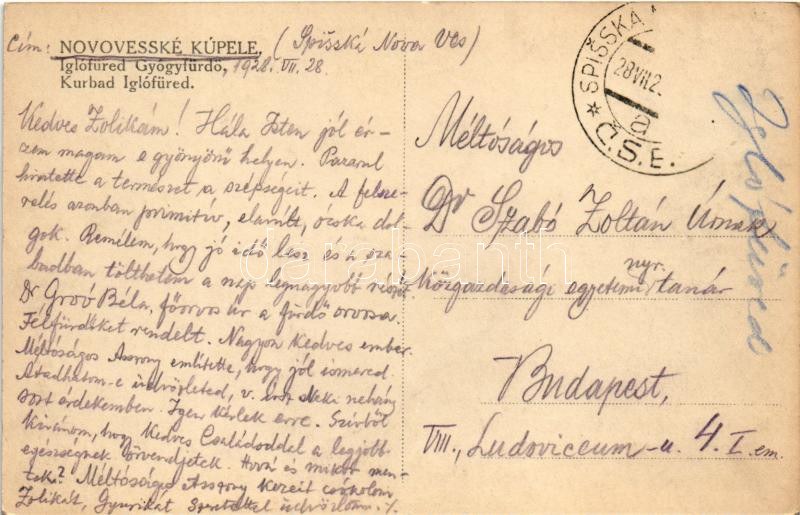 Cím: NOVOVESSKÉ KÚPELE, (Spišská Nova Ves)
Iglófüred Gyógyfürdő, 1928. VII. 28.
Kurbad Iglófüred.
Kedves Zolikám! Hála Isten jól ér-
zem magam e gyönyörű helyen. Pazarul
hintette a természet a szépségeit. A felsze-
relés azonban primitív, elavúlt, ócska dol-
gok. Remélem, hogy jó idő lesz és a sza-
badban tölthetem a nap legnagyobb részét.
Dr Groó Béla, főorvos úr a fürdő orvosa.
Félfürdőket rendelt. Nagyon kedves ember.
Méltóságos Asszony említette, hogy jól ismered.
Átadhatom-e üdvözleted, v. írsz Neki nehány
sort érdekemben. Igen kérlek erre. Szívből
kívánom, hogy Kedves Családoddal a legjobb
egészségnek örvendjetek. Hová és mikor men-
tek? Méltóságos Asszony kezeit csókolom
Zolikát, Gyurikát szeretettel üdvözlöm ·/.
SPIŠSKÁ
28.VII.2
a
Č.S.E.
Iglófüred
Méltóságos
Dr Szabó Zoltán Úrnak
nyr.
Közgazdasági egyetemi tanár
Budapest,
VIII., Ludoviceum-u. 4. I. em.
darabanth